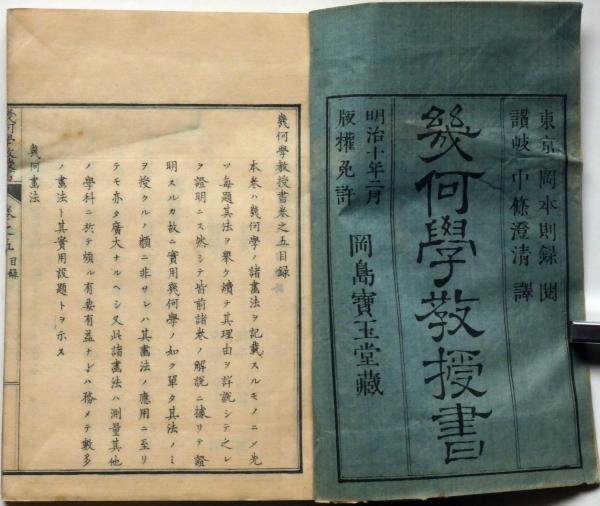 東京 岡本則録 閲
讃岐 中條澄清 譯
幾何學教授書
明治十年二月
版權免許
岡島寶玉堂藏
幾何学教授書巻之五目録
本巻ハ幾何学ノ諸畫法ヲ記載スルモノニシテ先
ツ毎題其法ヲ擧ケ續テ其理由ヲ詳說シテ之レ
ヲ證明ニス然シテ皆前諸巻ノ解說ニ據リテ證
明スルカ故ニ實用幾何学ノ如ク單タ其法ノミ
ヲ授クルノ類ニ非サレハ其畫法ノ應用ニ至リ
テモ亦タ廣大ナルヘシ又此諸畫法ハ測量其他
ノ學科ニ於テ頗ル有要有益ナレハ務メテ數多
ノ畫法ト其實用設題トヲ示ス
幾何畫法
巻之五 目録